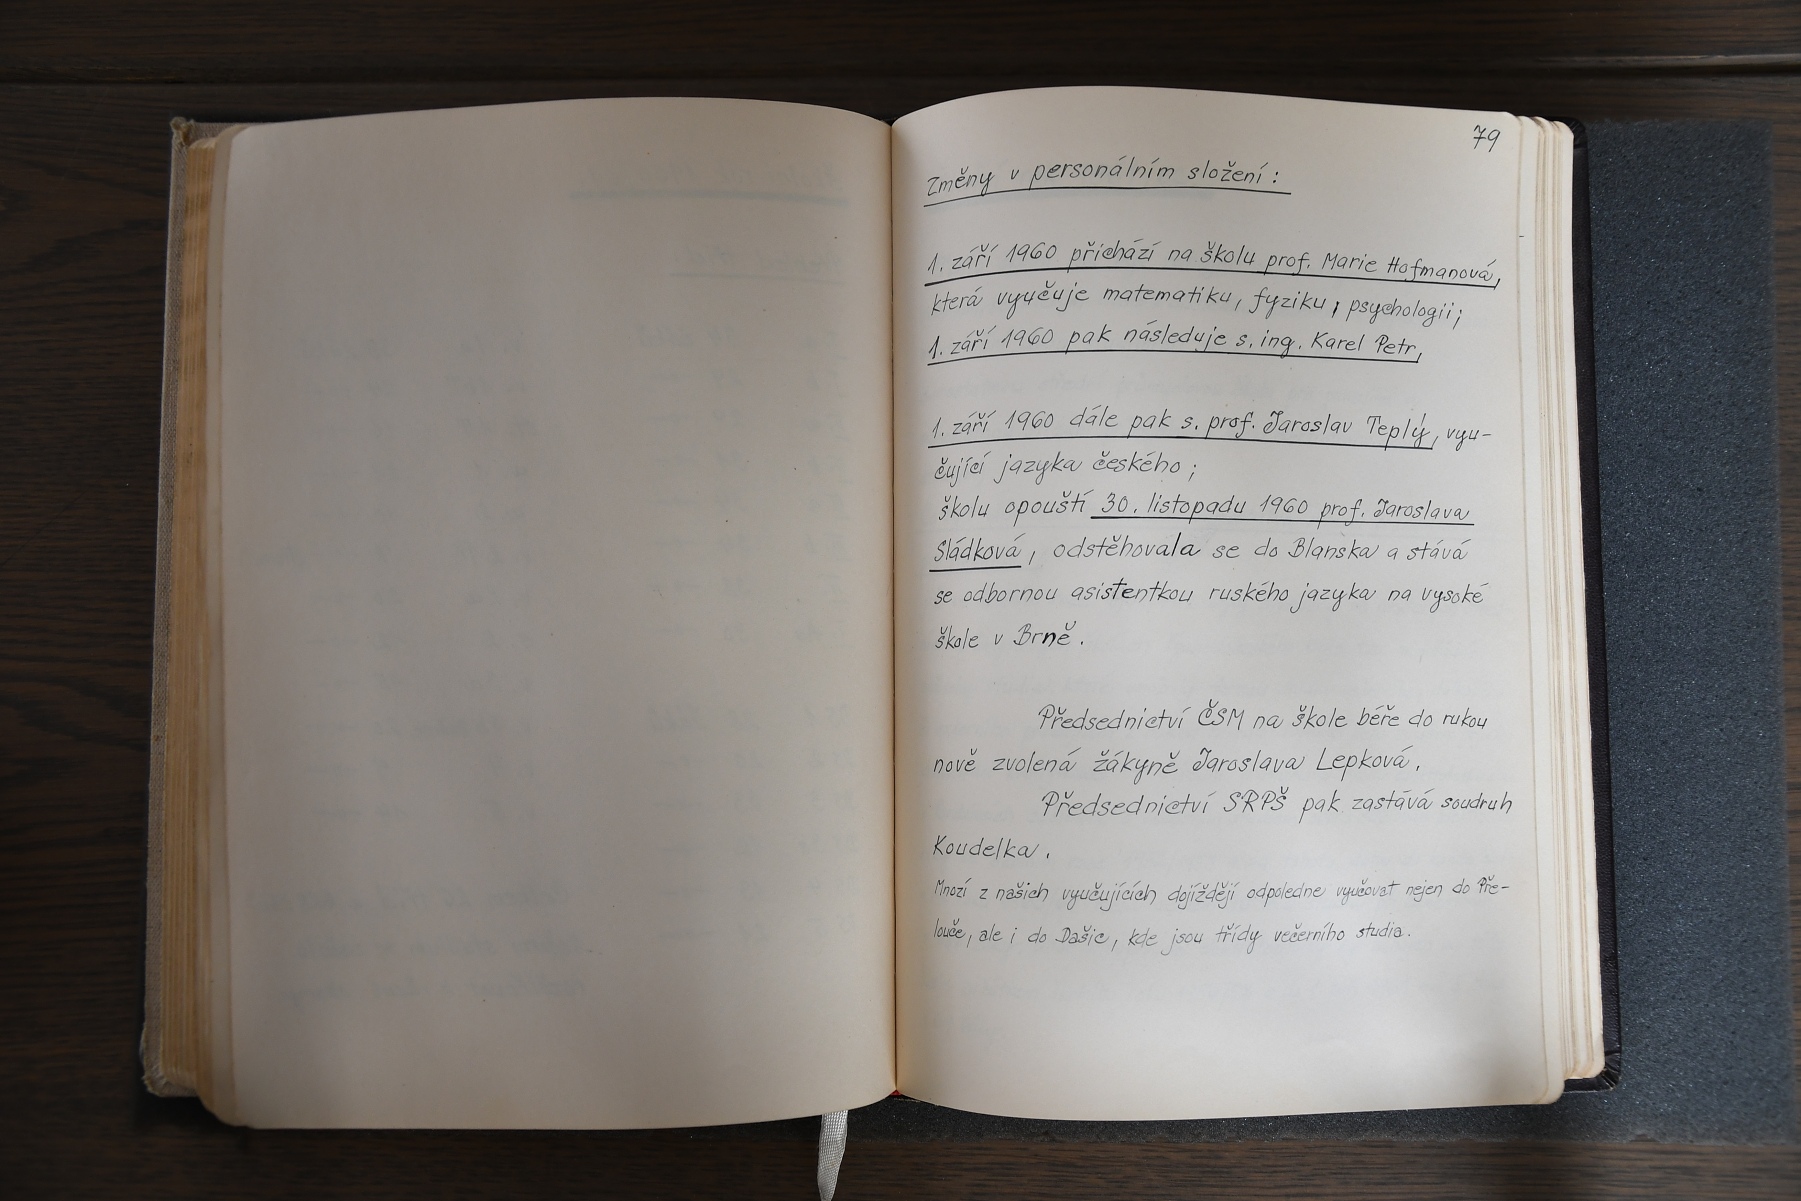 79
Změny v personálním složení :
1. září 1960 přichází na školu prof. Marie Hofmanová,
která vyučuje matematiku, fyziku, psychologii;
1. září 1960 pak následuje s. ing. Karel Petr,
1. září 1960 dále pak s. prof. Jaroslav Teplý, vyu-
čující jazyka českého ;
školu opouští 30. listopadu 1960 prof. Jaroslava
Sládková, odstěhovala se do Blanska a stává
se odbornou asistentkou ruského jazyka na vysoké
škole v Brně.
Předsednictví ČSM na škole béře do rukou
nově zvolená žákyně Jaroslava Lepková.
Předsednictví SRPŠ pak zastává soudruh
Koudelka.
Mnozí z našich vyučujících dojíždějí odpoledne vyučovat nejen do Pře-
louče, ale i do Dašic, kde jsou třídy večerního studia.